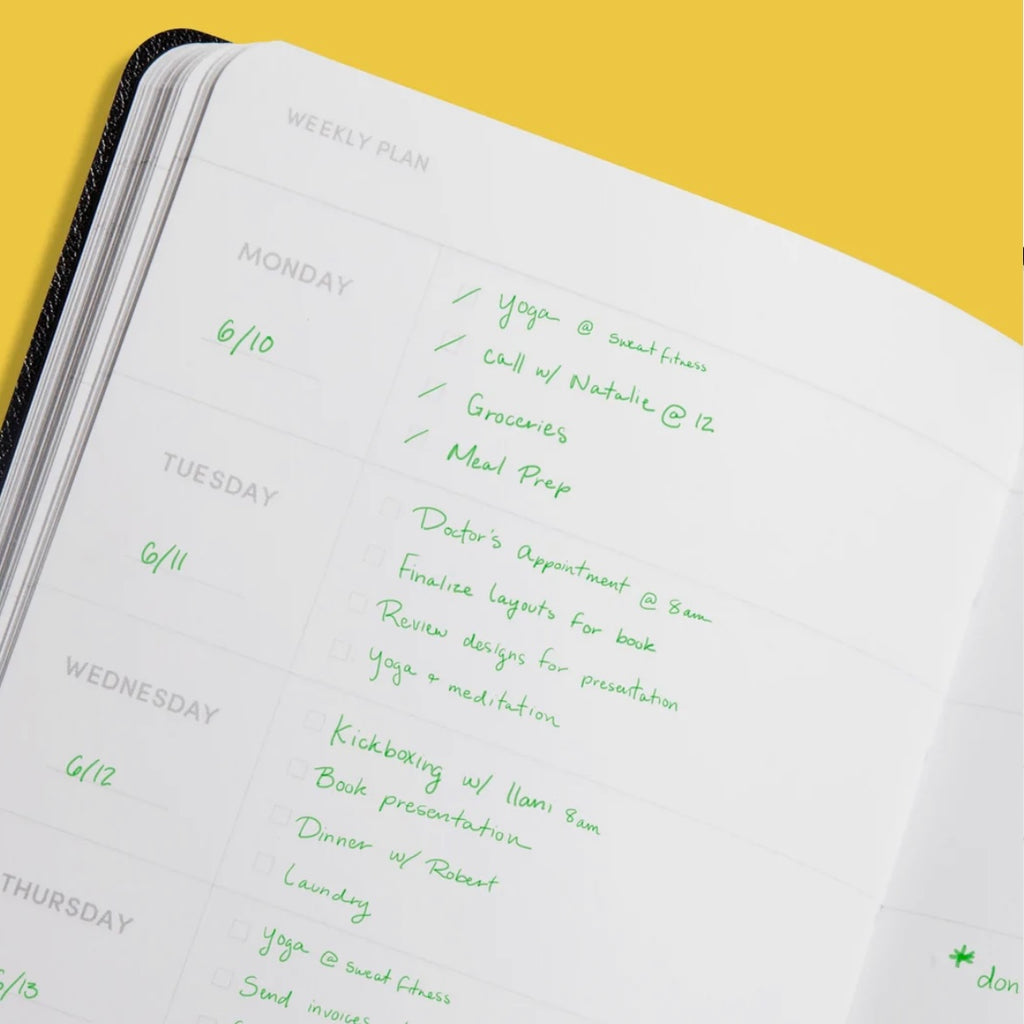 WEEKLY PLAN
MONDAY
6/10
Yoga @ sweat fitness
call w/ Natalie @ 12
Groceries
Meal Prep
TUESDAY
6/11
Doctor's appointment @ 8am
Finalize layouts for book
Review designs for presentation
Yoga + meditation
WEDNESDAY
6/12
Kickboxing w/ Ilani 8am
Book presentation
Dinner w/ Robert
Laundry
THURSDAY
6/13
Yoga @ sweat fitness
Send invoices
* don